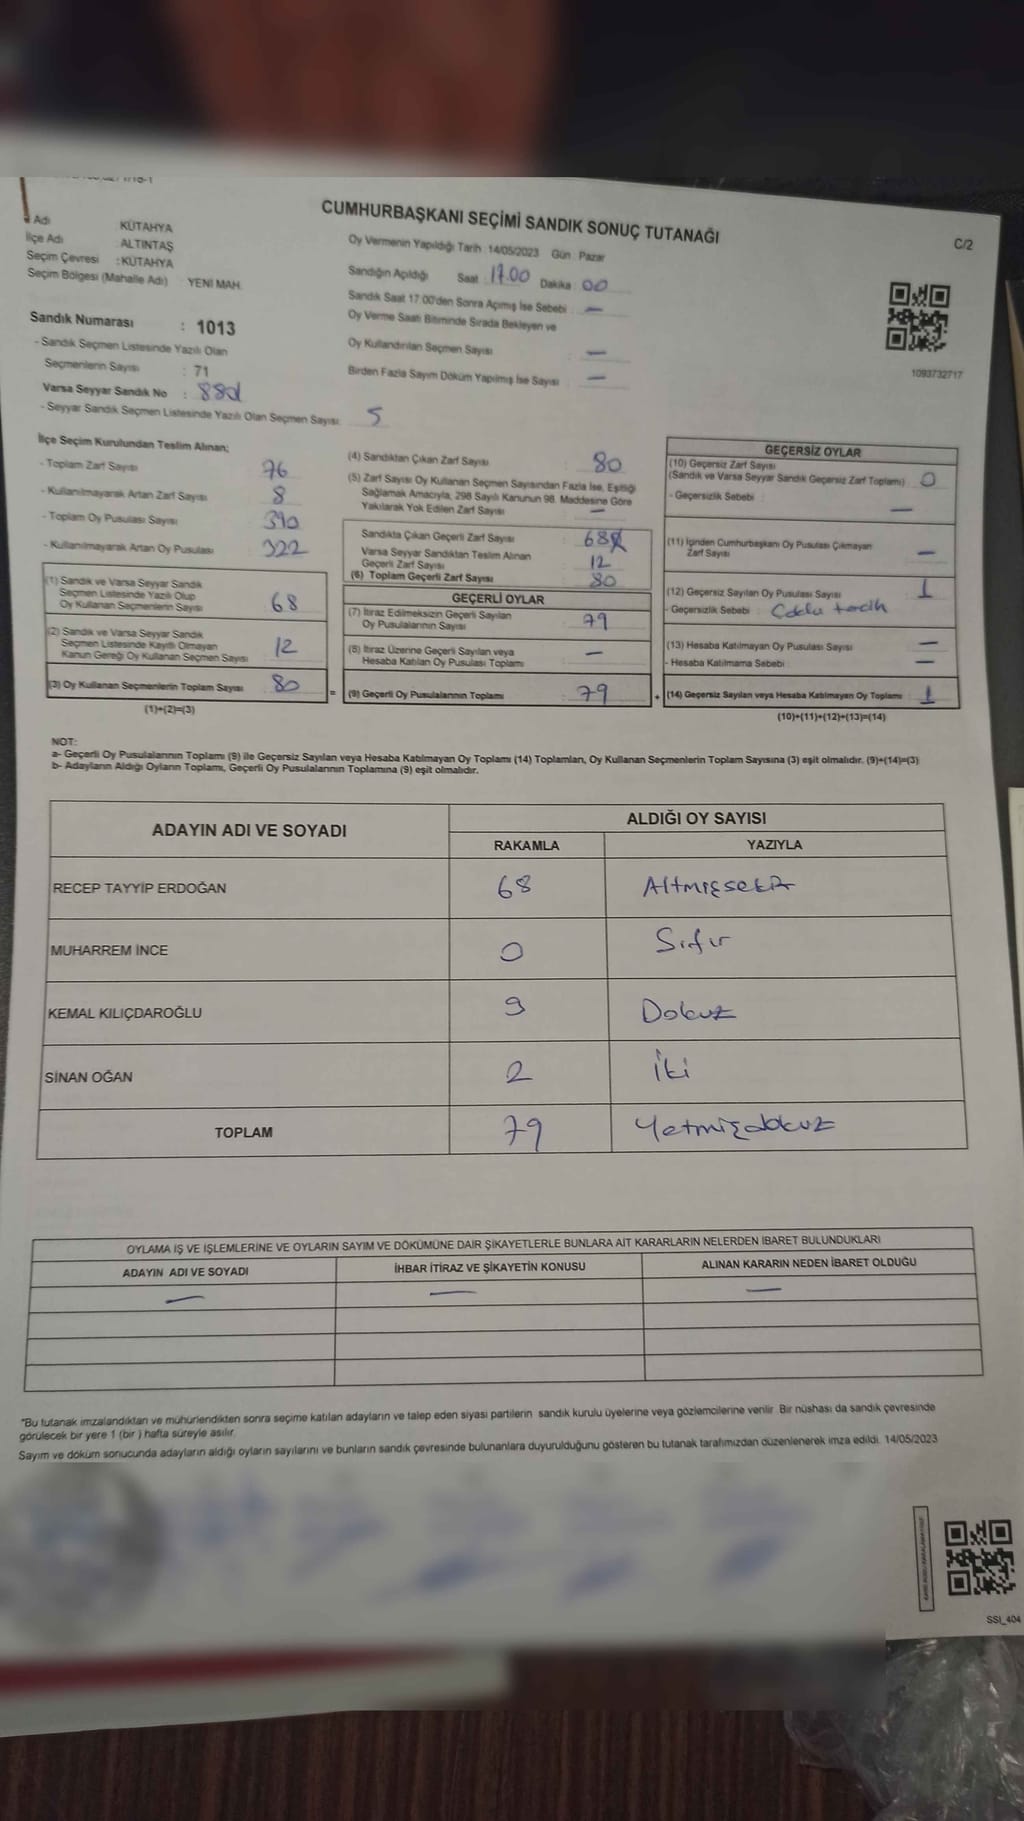 CUMHURBAŞKANI SEÇİMİ SANDIK SONUÇ TUTANAĞI
C/2
İl Adı KÜTAHYA
İlçe Adı ALTINTAŞ
Seçim Çevresi : KÜTAHYA
Seçim Bölgesi (Mahalle Adı) YENİ MAH.
Oy Vermenin Yapıldığı Tarih 14/05/2023 Gün : Pazar
Sandığın Açıldığı Saat 17.00 Dakika 00
Sandık Saat 17:00'den Sonra Açımış İse Sebebi : —
Oy Verme Saati Bitiminde Sırada Bekleyen ve
Oy Kullandırılan Seçmen Sayısı : —
Birden Fazla Sayım Döküm Yapılmış İse Sayısı : —
1093732717
Sandık Numarası : 1013
- Sandık Seçmen Listesinde Yazılı Olan
Seçmenlerin Sayısı : 71
Varsa Seyyar Sandık No :
- Seyyar Sandık Seçmen Listesinde Yazılı Olan Seçmen Sayısı: 5
İlçe Seçim Kurulundan Teslim Alınan;
- Toplam Zarf Sayısı 76
- Kullanılmayarak Artan Zarf Sayısı 8
- Toplam Oy Pusulası Sayısı 390
- Kullanılmayarak Artan Oy Pusulası 322
(1) Sandık ve Varsa Seyyar Sandık
Seçmen Listesinde Yazılı Olup
Oy Kullanan Seçmenlerin Sayısı 68
(2) Sandık ve Varsa Seyyar Sandık
Seçmen Listesinde Kayıtlı Olmayan
Kanun Gereği Oy Kullanan Seçmen Sayısı 12
(3) Oy Kullanan Seçmenlerin Toplam Sayısı 80
(1)+(2)=(3)
=
(4) Sandıktan Çıkan Zarf Sayısı : 80
(5) Zarf Sayısı Oy Kullanan Seçmen Sayısından Fazla İse, Eşitliği
Sağlamak Amacıyla, 298 Sayılı Kanunun 98. Maddesine Göre
Yakılarak Yok Edilen Zarf Sayısı —
Sandıkta Çıkan Geçerli Zarf Sayısı : 68
Varsa Seyyar Sandıktan Teslim Alınan
Geçerli Zarf Sayısı 12
(6) Toplam Geçerli Zarf Sayısı 80
GEÇERLİ OYLAR
(7) İtiraz Edilmeksizin Geçerli Sayılan
Oy Pusulalarının Sayısı : 79
(8) İtiraz Üzerine Geçerli Sayılan veya
Hesaba Katılan Oy Pusulası Toplamı : —
(9) Geçerli Oy Pusulalarının Toplamı : 79
+
GEÇERSİZ OYLAR
(10) Geçersiz Zarf Sayısı
(Sandık ve Varsa Seyyar Sandık Geçersiz Zarf Toplamı) : 0
- Geçersizlik Sebebi : —
(11) İçinden Cumhurbaşkanı Oy Pusulası Çıkmayan
Zarf Sayısı —
(12) Geçersiz Sayılan Oy Pusulası Sayısı : 1
- Geçersizlik Sebebi :
(13) Hesaba Katılmayan Oy Pusulası Sayısı : —
- Hesaba Katılmama Sebebi : —
(14) Geçersiz Sayılan veya Hesaba Katılmayan Oy Toplamı : 1
(10)+(11)+(12)+(13)=(14)
NOT:
a- Geçerli Oy Pusulalarının Toplamı (9) ile Geçersiz Sayılan veya Hesaba Katılmayan Oy Toplamı (14) Toplamları, Oy Kullanan Seçmenlerin Toplam Sayısına (3) eşit olmalıdır. (9)+(14)=(3)
b- Adayların Aldığı Oyların Toplamı, Geçerli Oy Pusulalarının Toplamına (9) eşit olmalıdır.
ADAYIN ADI VE SOYADI
ALDIĞI OY SAYISI
RAKAMLA YAZIYLA
RECEP TAYYİP ERDOĞAN 68 Altmışsekiz
MUHARREM İNCE 0 Sıfır
KEMAL KILIÇDAROĞLU 9 Dokuz
SİNAN OĞAN 2 İki
TOPLAM 79 Yetmişdokuz
OYLAMA İŞ VE İŞLEMLERİNE VE OYLARIN SAYIM VE DÖKÜMÜNE DAİR ŞİKAYETLERLE BUNLARA AİT KARARLARIN NELERDEN İBARET BULUNDUKLARI
ADAYIN ADI VE SOYADI İHBAR İTİRAZ VE ŞİKAYETİN KONUSU ALINAN KARARIN NEDEN İBARET OLDUĞU
— — —
*Bu tutanak imzalandıktan ve mühürlendikten sonra seçime katılan adayların ve talep eden siyasi partilerin sandık kurulu üyelerine veya gözlemcilerine verilir. Bir nüshası da sandık çevresinde
görülecek bir yere 1 (bir ) hafta süreyle asılır.
Sayım ve döküm sonucunda adayların aldığı oyların sayılarını ve bunların sandık çevresinde bulunanlara duyurulduğunu gösteren bu tutanak tarafımızdan düzenlenerek imza edildi. 14/05/2023
SSI_404